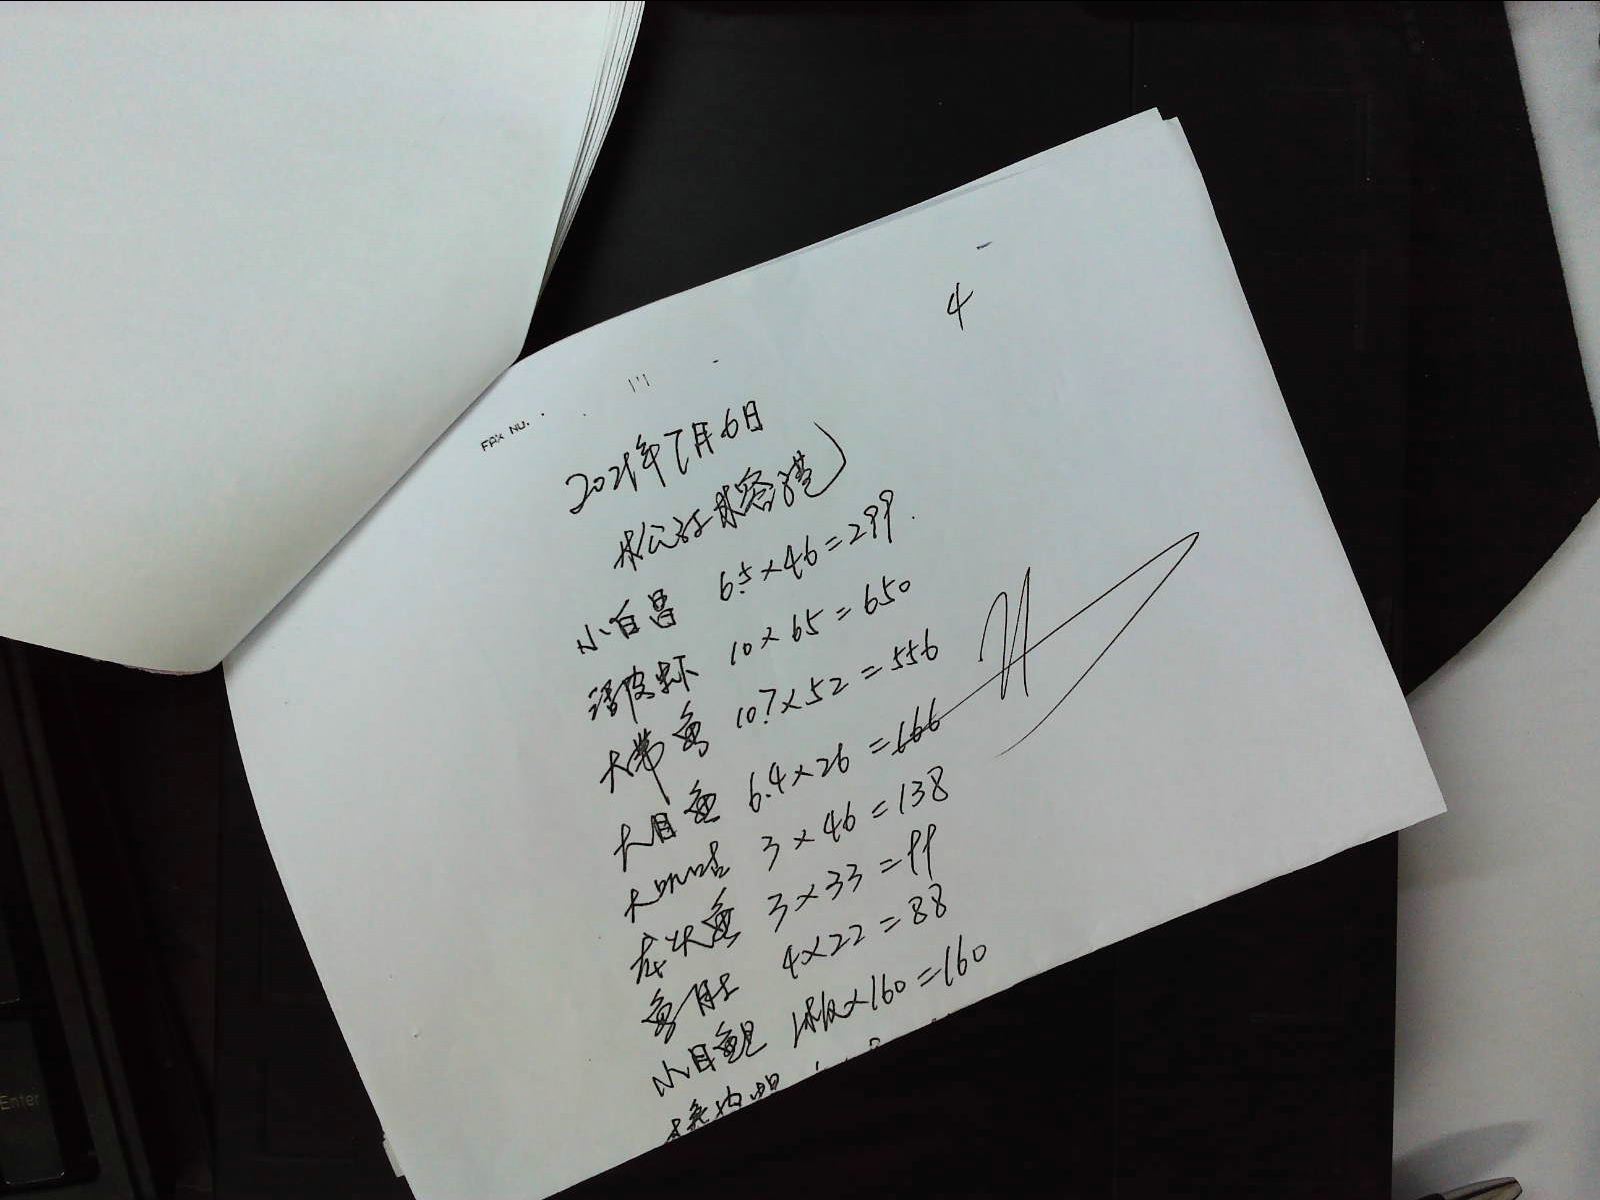 4
FAX NO.
2021年7月6日
小白昌 6.5×46=299
10×65=650
大带鱼 10.7×52=556
大目鱼 6.4×26=166
3×46=138
龙头鱼 3×33=99
鱼肚 4×22=88
小目鱼 1板×160=160